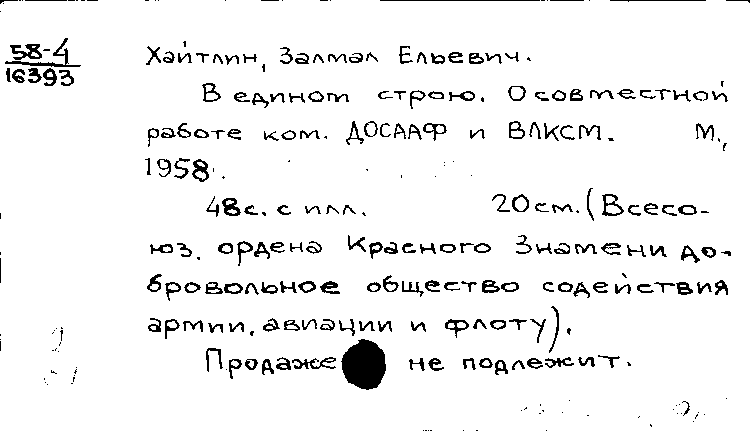 58-4
16393
Хайтлин, Залмал Ельевич.
В едином строю. О совместной
работе ком. ДОСААФ и ВЛКСМ. М.,
1958.
48с. с илл. 20см. (Всесо-
юз. ордена Красного Знамени до-
бровольное общество содействия
армии, авиации и флоту).
Продаже не подлежит.